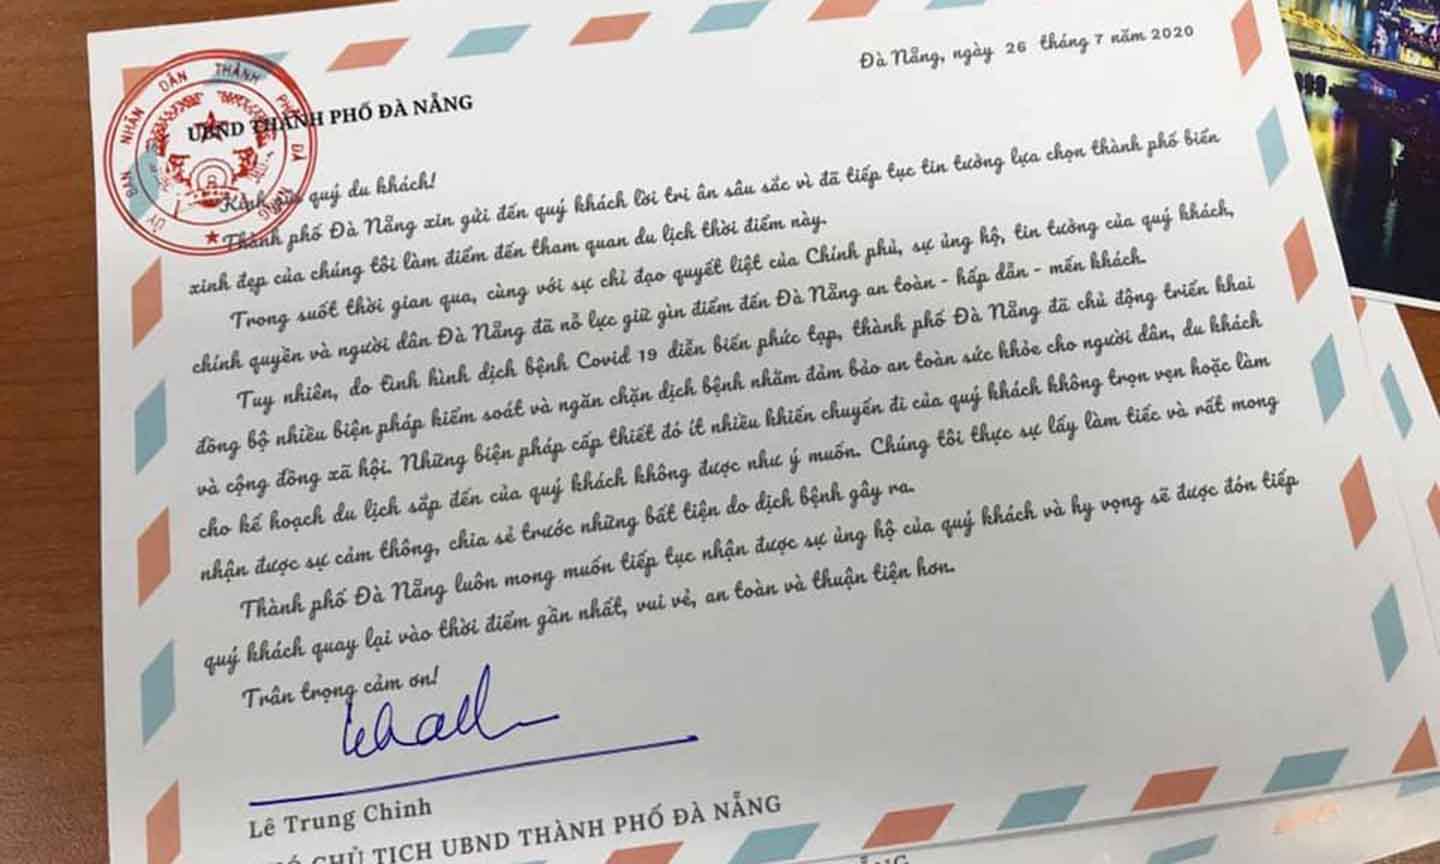 Đà Nẵng, ngày 26 tháng 7 năm 2020
ỦY BAN NHÂN DÂN THÀNH PHỐ ĐÀ NẴNG
UBND THÀNH PHỐ ĐÀ NẴNG
Kính gửi quý du khách!
Thành phố Đà Nẵng xin gửi đến quý khách lời tri ân sâu sắc vì đã tiếp tục tin tưởng lựa chọn thành phố biển
xinh đẹp của chúng tôi làm điểm đến tham quan du lịch thời điểm này.
Trong suốt thời gian qua, cùng với sự chỉ đạo quyết liệt của Chính phủ, sự ủng hộ, tin tưởng của quý khách,
chính quyền và người dân Đà Nẵng đã nỗ lực giữ gìn điểm đến Đà Nẵng an toàn - hấp dẫn - mến khách.
Tuy nhiên, do tình hình dịch bệnh Covid 19 diễn biến phức tạp, thành phố Đà Nẵng đã chủ động triển khai
đồng bộ nhiều biện pháp kiểm soát và ngăn chặn dịch bệnh nhằm đảm bảo an toàn sức khỏe cho người dân, du khách
và cộng đồng xã hội. Những biện pháp cấp thiết đó ít nhiều khiến chuyến đi của quý khách không trọn vẹn hoặc làm
cho kế hoạch du lịch sắp đến của quý khách không được như ý muốn. Chúng tôi thực sự lấy làm tiếc và rất mong
nhận được sự cảm thông, chia sẻ trước những bất tiện do dịch bệnh gây ra.
Thành phố Đà Nẵng luôn mong muốn tiếp tục nhận được sự ủng hộ của quý khách và hy vọng sẽ được đón tiếp
quý khách quay lại vào thời điểm gần nhất, vui vẻ, an toàn và thuận tiện hơn.
Trân trọng cảm ơn!
Lê Trung Chinh
CHỦ TỊCH UBND THÀNH PHỐ ĐÀ NẴNG